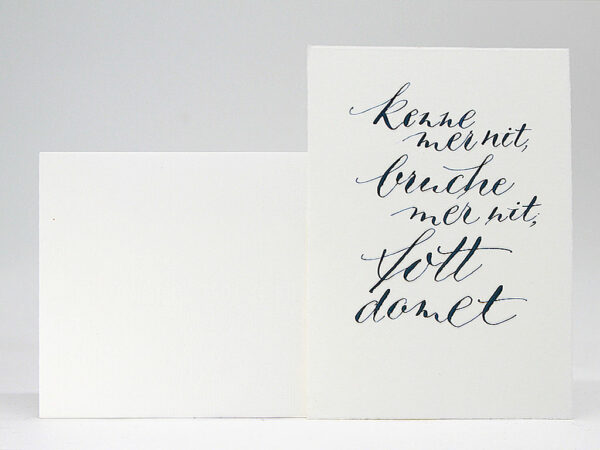 kenne
mer nit,
bruche
mer nit,
fott
domet